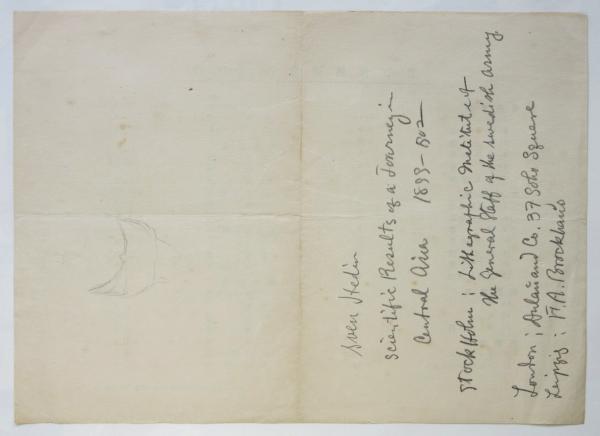 Sven Hedin
Scientific Results of a Journey in
Central Asia 1899-1902
Stockholm ; Lithographic Institute of
the General Staff of the Swedish Army
London ; Dulau and Co. 37 Soho Square
Leipzig : F. A. Brockhaus